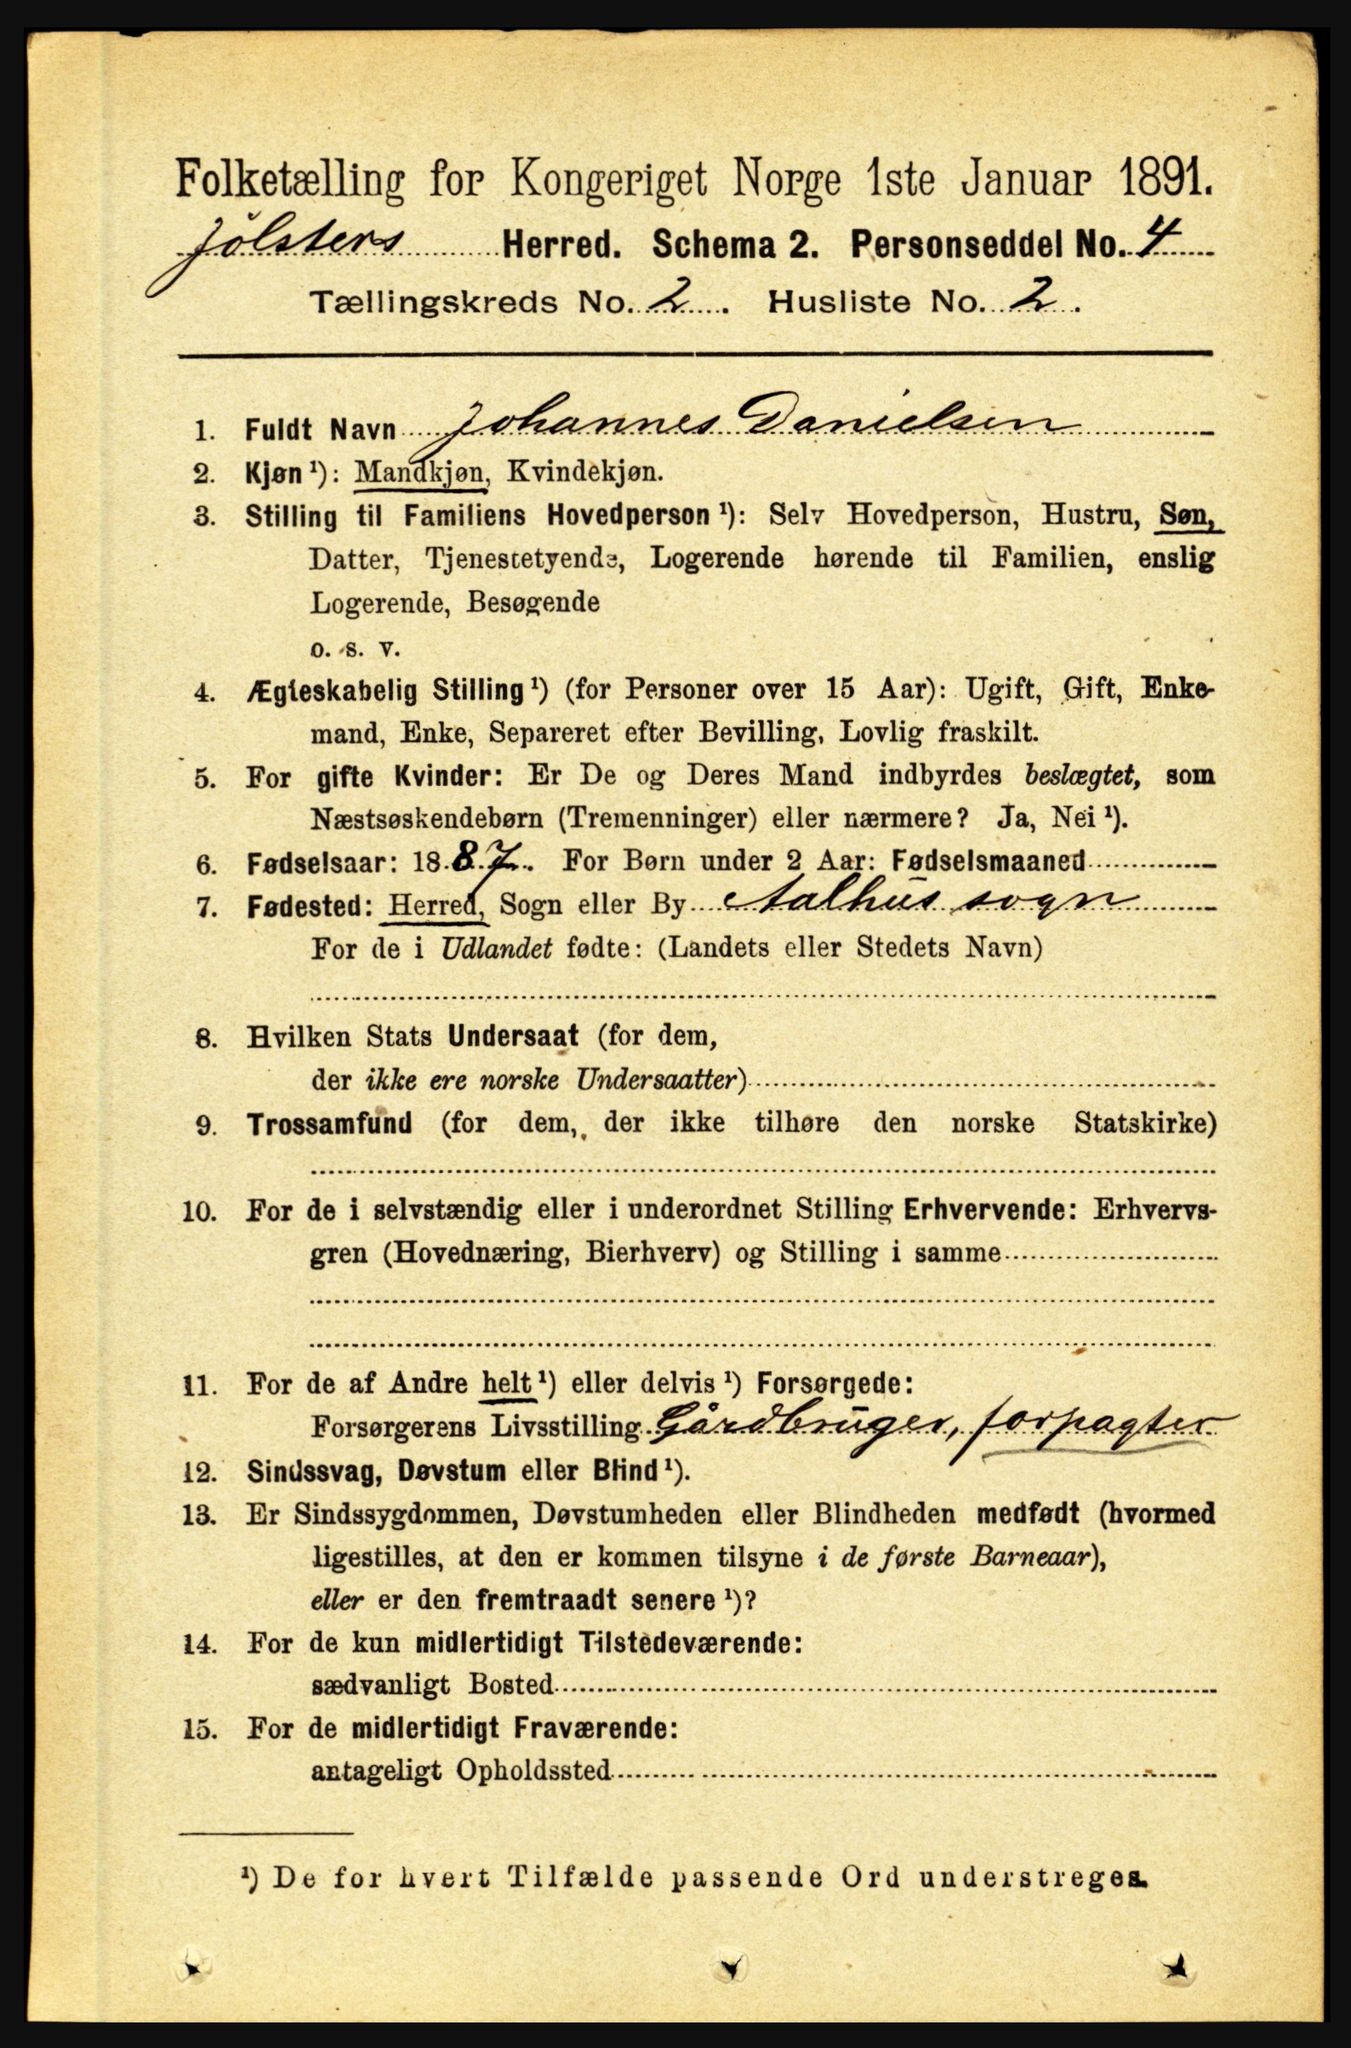 Folketælling for Kongeriget Norge 1ste Januar 1891.
Jølsters Herred. Schema 2. Personseddel No. 4
Tællingskreds No. 2. Husliste No. 2.
1. Fuldt Navn Johannes Danielsen
2. Kjøn ¹): Mandkjøn, Kvindekjøn.
3. Stilling til Familiens Hovedperson ¹): Selv Hovedperson, Hustru, Søn,
Datter, Tjenestetyende, Logerende hørende til Familien, enslig
Logerende, Besøgende
o. s. v.
4. Ægteskabelig Stilling ¹) (for Personer over 15 Aar): Ugift, Gift, Enke-
mand, Enke, Separeret efter Bevilling, Lovlig fraskilt.
5. For gifte Kvinder: Er De og Deres Mand indbyrdes beslægtet, som
Næstsøskendebørn (Tremenninger) eller nærmere? Ja, Nei ¹).
6. Fødselsaar: 1887. For Børn under 2 Aar: Fødselsmaaned
7. Fødested: Herred, Sogn eller By Aalhus sogn
For de i Udlandet fødte: (Landets eller Stedets Navn)
8. Hvilken Stats Undersaat (for dem,
der ikke ere norske Undersaatter)
9. Trossamfund (for dem, der ikke tilhøre den norske Statskirke)
10. For de i selvstændig eller i underordnet Stilling Erhvervende: Erhvervs-
gren (Hovednæring, Bierhverv) og Stilling i samme
11. For de af Andre helt ¹) eller delvis ¹) Forsørgede:
Forsørgerens Livsstilling Gårdbruger, forpagter
12. Sindssvag, Døvstum eller Blind ¹).
13. Er Sindssygdommen, Døvstumheden eller Blindheden medfødt (hvormed
ligestilles, at den er kommen tilsyne i de første Barneaar),
eller er den fremtraadt senere ¹)?
14. For de kun midlertidigt Tilstedeværende:
sædvanligt Bosted
15. For de midlertidigt Fraværende:
antageligt Opholdssted
¹) De for hvert Tilfælde passende Ord understreges.